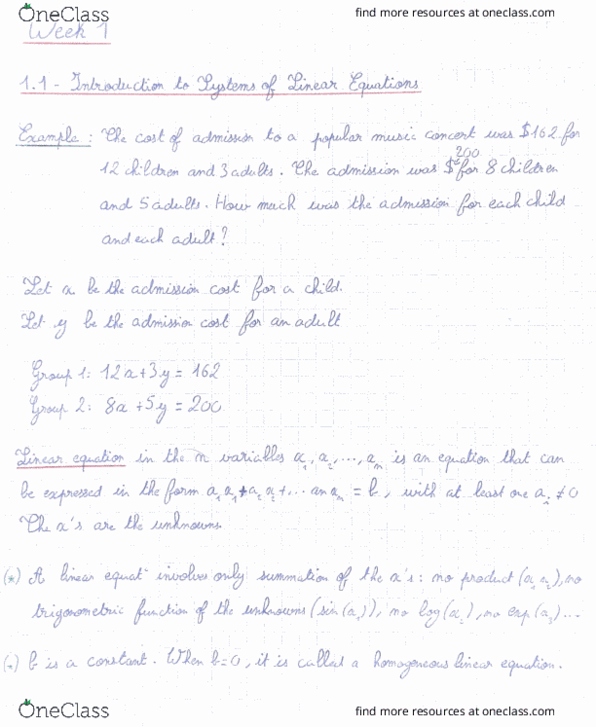 OneClass
find more resources at oneclass.com
Week 1
1.1 - Introduction to Systems of Linear Equations
Example: The cost of admission to a popular music concert was $162 for
12 children and 3 adults. The admission was $200 for 8 children
and 5 adults. How much was the admission for each child
and each adult?
Let x be the admission cost for a child.
Let y be the admission cost for an adult
Group 1: 12x + 3y = 162
Group 2: 8x + 5y = 200
Linear equation in the n variables x₁, x₂, ..., xₙ is an equation that can
be expressed in the form a₁x₁ + a₂x₂ + ... anxₙ = b, with at least one aᵢ ≠ 0
The x's are the unknowns
(*) A linear equat° involves only summation of the x's: no product (x₁x₂), no
trigonometric function of the unknowns (sin(x₁)), no log(x₂), no exp(x₃)...
(.) b is a constant. When b=0, it is called a homogeneous linear equation.
OneClass
find more resources at oneclass.com